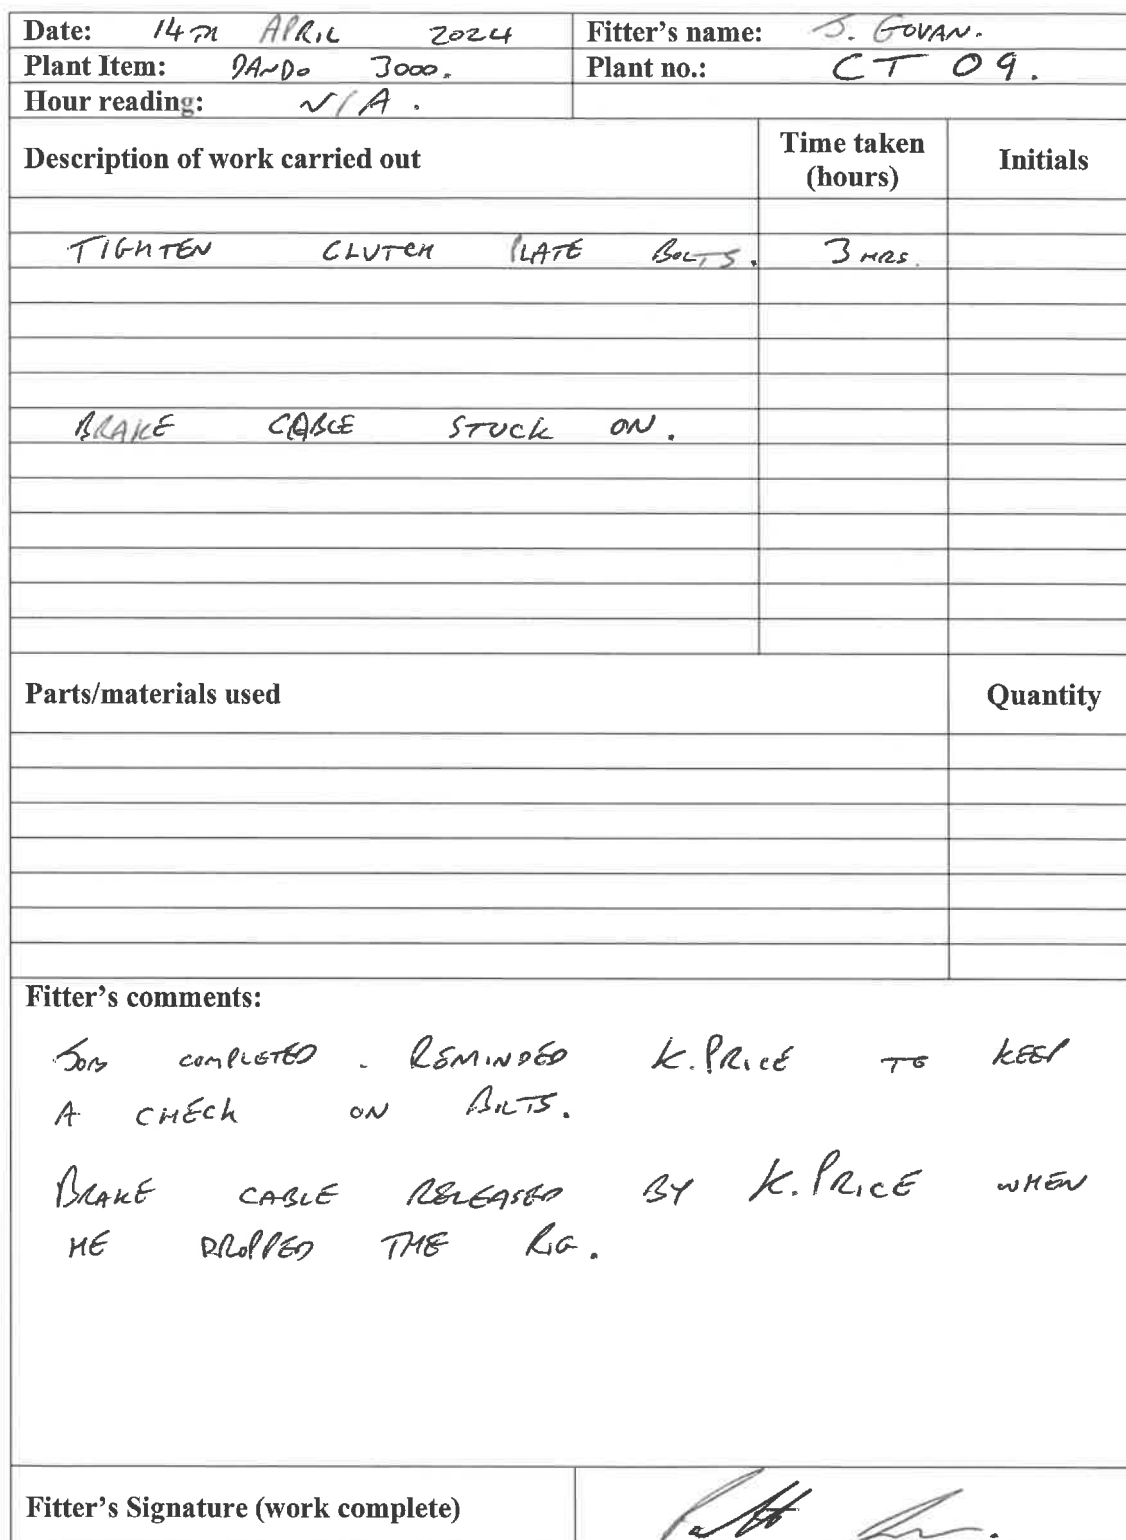 Date: 14TH APRIL 2024 Fitter's name: J. GOVAN.
Plant Item: DANDO 3000. Plant no.: CT 09.
Hour reading: N/A.
Description of work carried out Time taken (hours) Initials
TIGHTEN CLUTCH PLATE BOLTS. 3 HRS.
BRAKE CABLE STUCK ON.
Parts/materials used Quantity
Fitter's comments:
JOB COMPLETED. REMINDED K. PRICE TO KEEP
A CHECK ON BOLTS.
BRAKE CABLE RELEASED BY K. PRICE WHEN
HE DROPPED THE RIG.
Fitter's Signature (work complete)